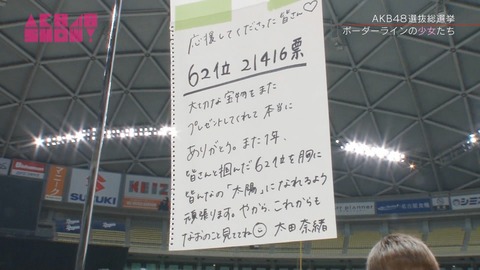 AKB48 SHOW!
AKB48選抜総選挙
ボーダーラインの少女たち
応援してくださった皆さん♡
62位 21416票
大切な宝物をまた
プレゼントしてくれて 本当に
ありがとう。また1年、
皆さんと掴んだ62位を胸に
皆んなの「太陽」になれるよう
頑張ります。やから、これからも
なおのこと見ててね☺ 太田奈緒
SUZUKI
KEIZ